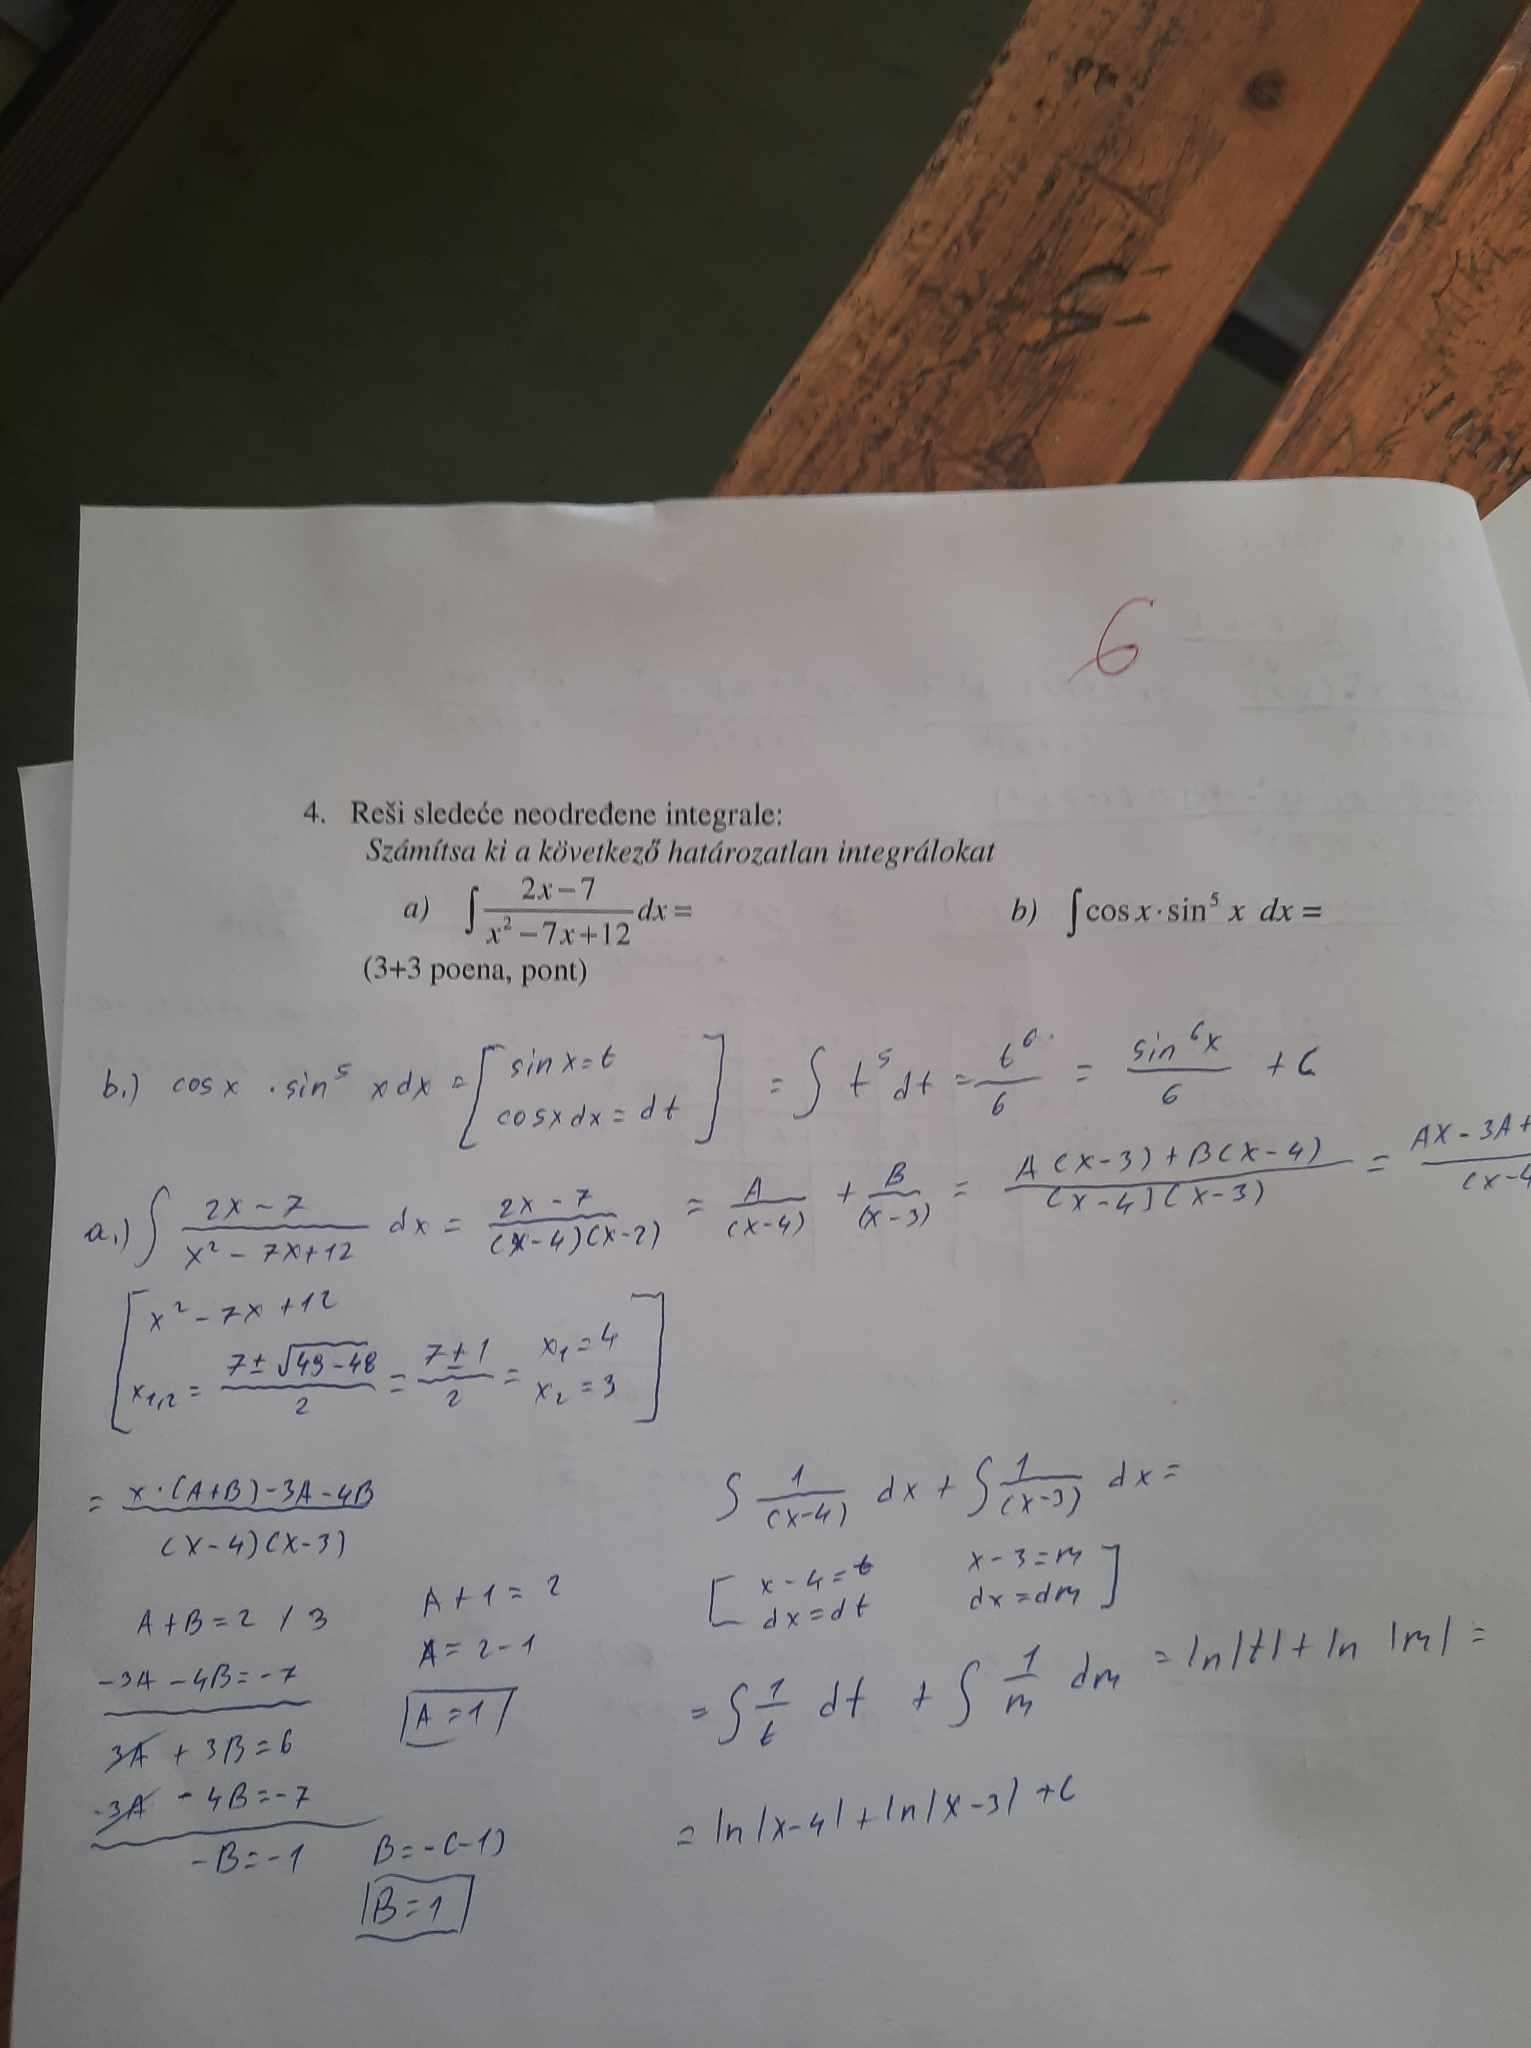 6
4. Reši sledeće neodređene integrale:
Számítsa ki a következő határozatlan integrálokat
a) ∫ (2x−7)/(x²−7x+12) dx =    b) ∫ cos x · sin⁵ x dx =
(3+3 poena, pont)
b.) cos x · sin⁵ x dx = [ sin x = t
cos x dx = dt ] = ∫ t⁵ dt = t⁶/6 = sin⁶x/6 + C
a.) ∫ (2x−7)/(x²−7x+12) dx = (2x−7)/((x−4)(x−2)) = A/(x−4) + B/(x−3) = (A(x−3)+B(x−4))/((x−4)(x−3)) = (Ax−3A+/(x−4
[ x²−7x+12
x₁,₂ = (7±√49−48)/2 = (7±1)/2 = x₁=4
x₂=3 ]
= (x·(A+B)−3A−4B)/((x−4)(x−3))
A+B=2 / 3
−3A−4B=−7
3A+3B=6
−3A−4B=−7
−B=−1
B=−(−1)
B=1
A+1=2
A=2−1
A=1
∫ 1/(x−4) dx + ∫ 1/(x−3) dx =
[ x−4=t    x−3=m
dx=dt    dx=dm ]
= ∫ 1/t dt + ∫ 1/m dm = ln|t| + ln |m| =
= ln|x−4| + ln|x−3| + C